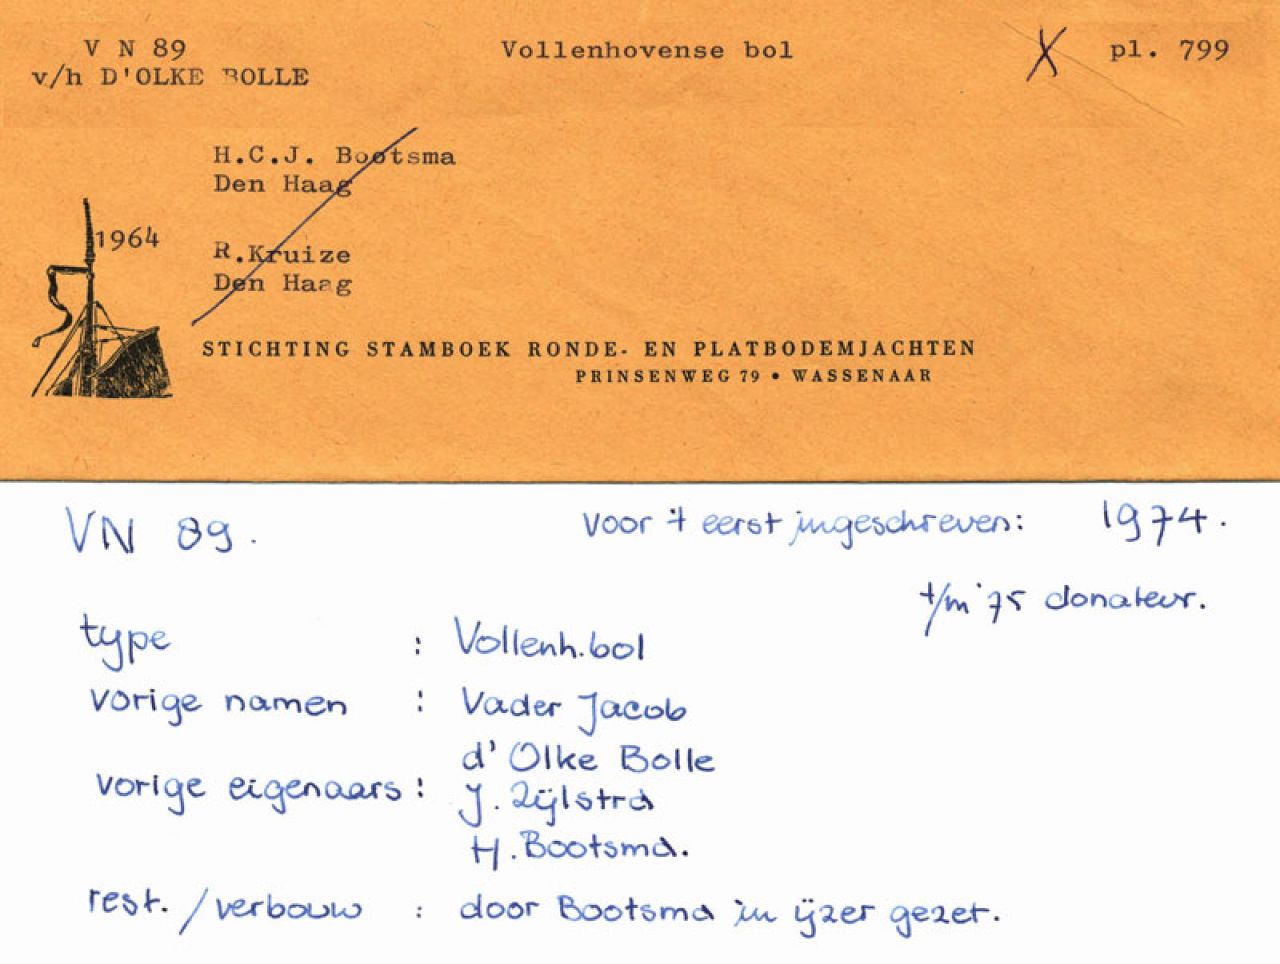 V N 89 Vollenhovense bol X pl. 799
v/h D'OLKE BOLLE
H.C.J. Bootsma
Den Haag
1964
R.Kruize
Den Haag
STICHTING STAMBOEK RONDE- EN PLATBODEMJACHTEN
PRINSENWEG 79 • WASSENAAR
VN 89. voor 't eerst ingeschreven: 1974.
t/m '75 donateur.
type : Vollenh.bol
vorige namen : Vader Jacob
d' Olke Bolle
vorige eigenaars : J. Zijlstra
H. Bootsma.
rest. /verbouw : door Bootsma in ijzer gezet.